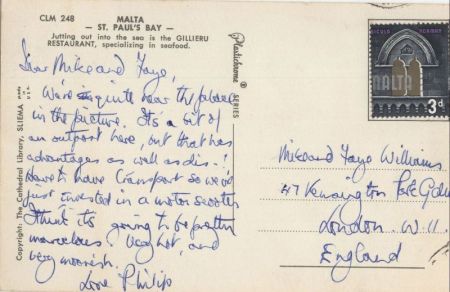 CLM 248
MALTA
— ST. PAUL'S BAY —
Jutting out into the sea is the GILLIERU
RESTAURANT, specializing in seafood.
Dear Mike and Faye,
We're quite near the palace
in the picture. It's a bit of
an outpost here, but that has
advantages as well as dis-!
Have to have transport so we've
just invested in a motor scooter
Think it's going to be pretty
marvelous. Very hot, and
very moorish.
Love Philip
Copyright: The Cathedral Library, SLIEMA
made in U.S.A.
Plastichrome ® SERIES
MALTA
3d
Mike and Faye Williams
47 Kensington Pk Gdns
London W11
England